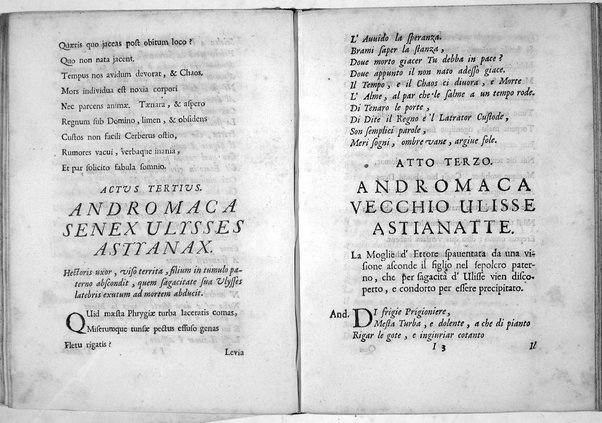 Quæris quo jaceas post obitum loco ?
Quo non nata jacent.
Tempus nos avidum devorat, & Chaos.
Mors individua est noxia corpori
Nec parcens animæ. Tænara, & aspero
Regnum sub Domino, limen, & obsidens
Custos non facili Cerberus ostio,
Rumores vacui, verbaque inania,
Et par solicito fabula somnio.
ACTVS TERTIUS.
ANDROMACA
SENEX ULYSSES
ASTYANAX.
Hectoris uxor, viso territa, filium in tumulo pa-
terno abscondit, quem sagacitate sua Ulysses
latebris exutum ad mortem abducit.
QUid mæsta Phrygiæ turba laceratis comas,
Miserumque tunsæ pectus effuso genas
Fletu rigatis ?
Levia
L' Avvido la speranza.
Brami saper la stanza,
Doue morto giacer Tu debba in pace ?
Doue appunto il non nato adesso giace.
Il Tempo, e il Chaos ci diuora, e Morte
L' Alme, al par che le salme a un tempo rode.
Di Tenaro le porte,
Di Dite il Regno e 'l Latrator Custode,
Son semplici parole,
Meri sogni, ombre vane, argiue fole.
ATTO TERZO.
ANDROMACA
VECCHIO ULISSE
ASTIANATTE.
La Moglie d' Ettore spauentata da una vi-
sione asconde il figlio nel sepolcro pater-
no, che per sagacità d' Ulisse vien disco-
petto, e condotto per essere precipitato.
And. DI frigie Prigioniere,
Mesta Turba, e dolente, a che di pianto
Rigar le gote, e ingiuriar cotanto
I 3
Il